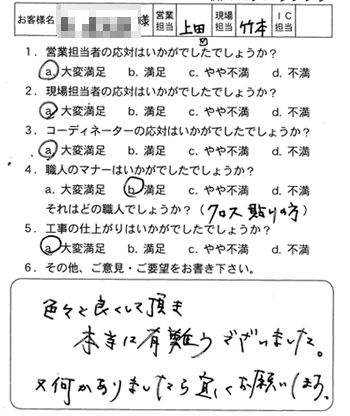 お客様名 様 営業担当 上田 現場担当 竹本 IC担当
1．営業担当者の応対はいかがでしたでしょうか？
a. 大変満足 b. 満足 c. やや不満 d. 不満
2．現場担当者の応対はいかがでしたでしょうか？
a. 大変満足 b. 満足 c. やや不満 d. 不満
3．コーディネーターの応対はいかがでしたでしょうか？
a. 大変満足 b. 満足 c. やや不満 d. 不満
4．職人のマナーはいかがでしたでしょうか？
a. 大変満足 b. 満足 c. やや不満 d. 不満
それはどの職人でしょうか？（クロス貼りの方）
5．工事の仕上がりはいかがでしたでしょうか？
a. 大変満足 b. 満足 c. やや不満 d. 不満
6．その他、ご意見・ご要望をお書き下さい。
色々と良くして頂き
本当に有難うございました。
又何かありましたら宜しくお願いします。